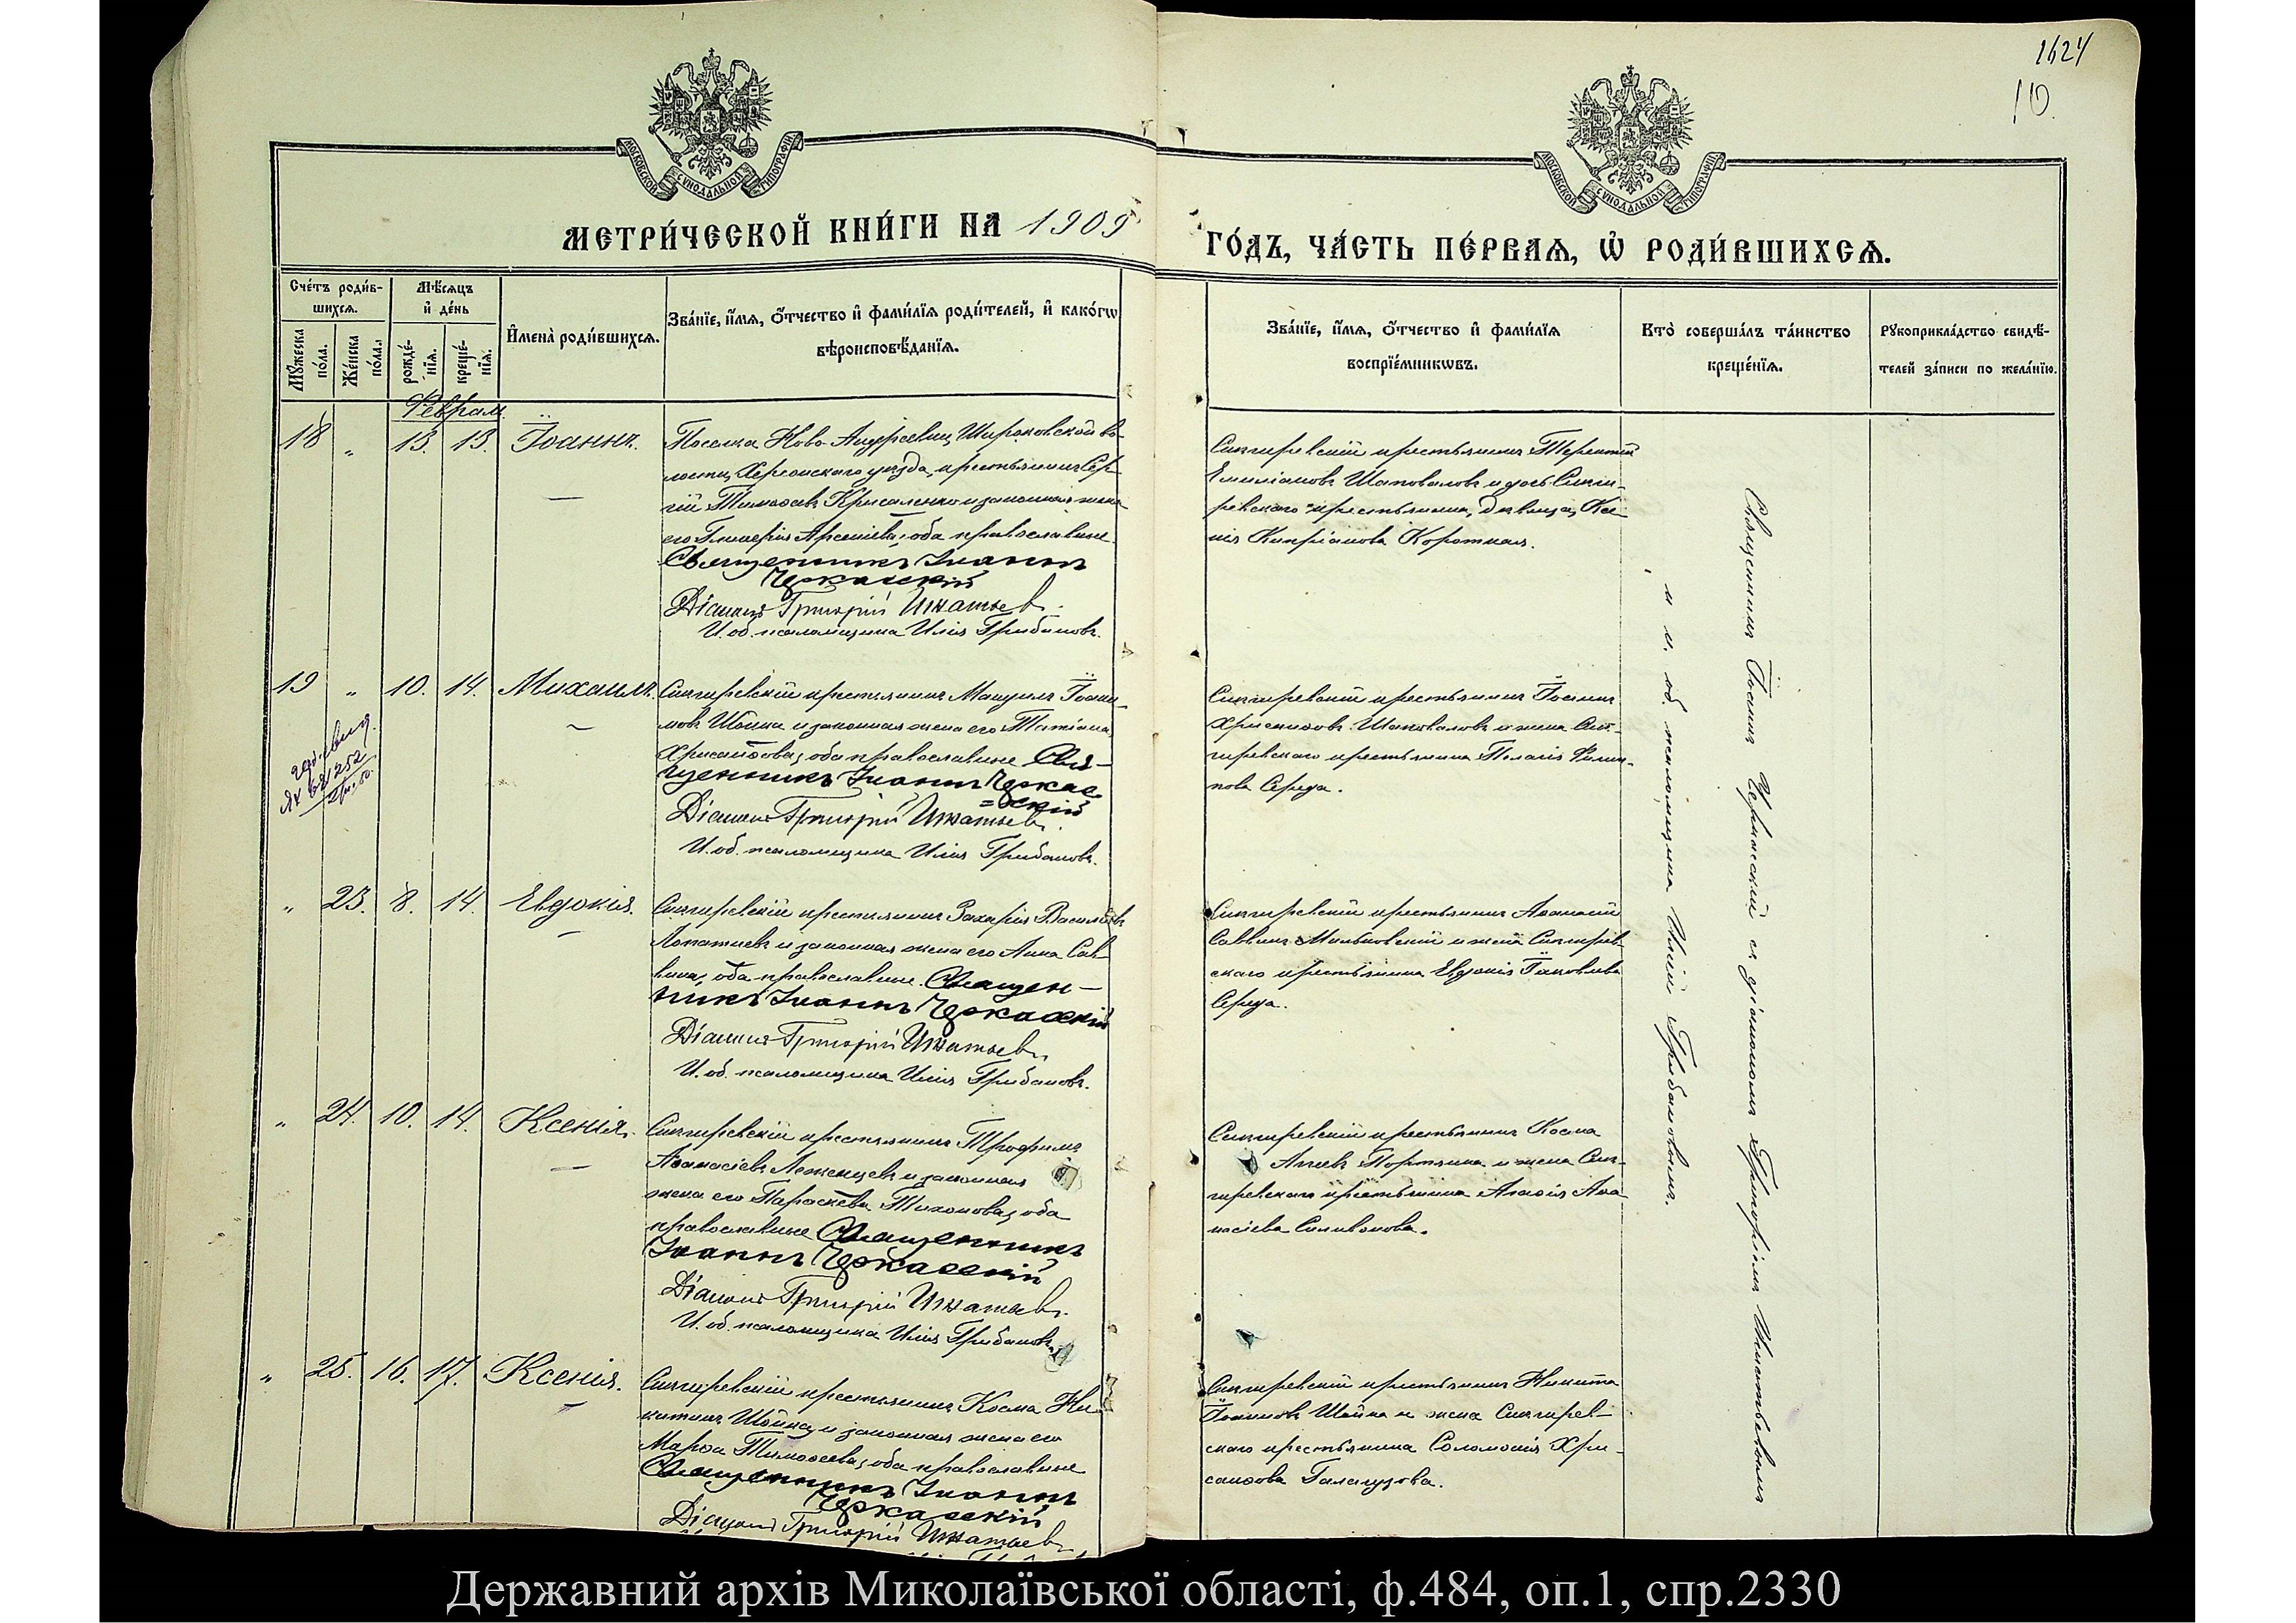 1624
10.
МОСКОВСКОЙ СѴНОДАЛЬНОЙ ТИПОГРАФІИ
МОСКОВСКОЙ СѴНОДАЛЬНОЙ ТИПОГРАФІИ
МЕТРИ́ЧЕСКОЙ КНИ́ГИ НА 1909
ГО́ДЪ, ЧА́СТЬ ПЕ́РВАѦ, Ѡ҆ РОДИ́ВШИХСѦ.
Сче́тъ роди́вшихсѧ.
Мꙋ́жеска по́ла.
Же́нска по́ла.
Мѣ́сѧцъ и҆ де́нь
рожде́нїѧ.
креще́нїѧ.
И҆мена̀ роди́вшихсѧ.
Зва́нїе, и҆́мѧ, ѻ҆́тчество и҆ фами́лїѧ роди́телей, и҆ како́гѡ
вѣроисповѣ́данїѧ.
Зва́нїе, и҆́мѧ, ѻ҆́тчество и҆ фами́лїѧ
воспрїе́мникѡвъ.
Кто̀ соверша́лъ та́инство
креще́нїѧ.
Рꙋкоприкла́дство свидѣ́-
телей за́писи по жела́нїю.
Феврал.
18 " 13. 13. Іоаннъ.
Поселка Ново-Андреевки, Широковской во-
лости, Херсонскаго уѣзда, крестьянинъ Сер-
гій Тимоѳеевъ Крысаленко и законная жена
его Гликерія Арсеніева, оба православные.
Священникъ Іоаннъ
Черкасскій
Діаконъ Григорій Игнатьевъ.
И. об. псаломщика Илія Грибановъ.
Снигиревскій крестьянинъ Терентій
Емиліановъ Шаповаловъ и дочь Сниги-
ревскаго крестьянина, дѣвица, Ксе-
нія Кипріанова Короткая.
19 " 10. 14. Михаилъ.
Снигиревскій крестьянинъ Мануилъ Іоан-
новъ Шойка и законная жена его Татіана
Хрисанѳова, оба православные. Свя-
щенникъ Іоаннъ Черкас-
=скій
Діаконъ Григорій Игнатьевъ.
И. об. псаломщика Илія Грибановъ.
Снигиревскій крестьянинъ Іоаннъ
Хрисанѳовъ Шаповаловъ и жена Сни-
гиревскаго крестьянина Пелагія Филип-
пова Середа.
" 23. 8. 14. Евдокія.
Снигиревскій крестьянинъ Захарія Васильевъ
Лопатневъ и законная жена его Анна Сав-
вина, оба православные. Священ-
никъ Іоаннъ Черкасскій
Діаконъ Григорій Игнатьевъ.
И. об. псаломщика Илія Грибановъ.
Снигиревскій крестьянинъ Аѳанасій
Саввинъ Мальковскій и жена Снигирев-
скаго крестьянина Евдокія Іаковлева
Середа.
" 24. 10. 14. Ксенія.
Снигиревскій крестьянинъ Трофимъ
Аѳанасіевъ Леженцевъ и законная
жена его Параскева Тихонова, оба
православные. Священникъ
Іоаннъ Черкасскій
Діаконъ Григорій Игнатьевъ.
И. об. псаломщика Илія Грибановъ.
Снигиревскій крестьянинъ Косма
Портянка и жена Сни-
гиревскаго крестьянина Агаѳія Аѳа-
насіева Селиванова.
" 25. 16. 17. Ксенія.
Снигиревскій крестьянинъ Косма Ни-
китинъ Шойка и законная жена его
Марѳа Тимоѳеева, оба православные
Священникъ Іоаннъ
Черкасскій
Діаконъ Григорій Игнатьевъ
Снигиревскій крестьянинъ Никита
Іоанновъ Шойка и жена Снигирев-
скаго крестьянина Соломонія Хри-
санѳова Галагузова.
Священникъ Іоаннъ Черкасскій съ діакономъ Григоріемъ Игнатьевымъ
и и. об. псаломщика Иліей Грибановымъ.
Державний архів Миколаївської області, ф.484, оп.1, спр.2330